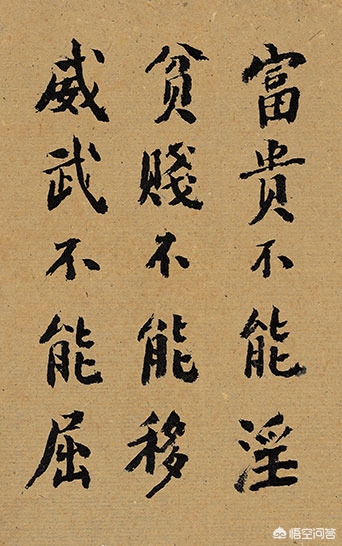 富贵不能淫
贫賤不能移
威武不能屈
悟空问答